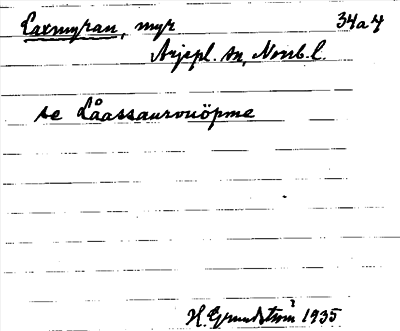 Laxmyran, myr 34a4
Arjepl. sn, Norrb. l.
se Låassaurvuöpme
H. Grundström 1935